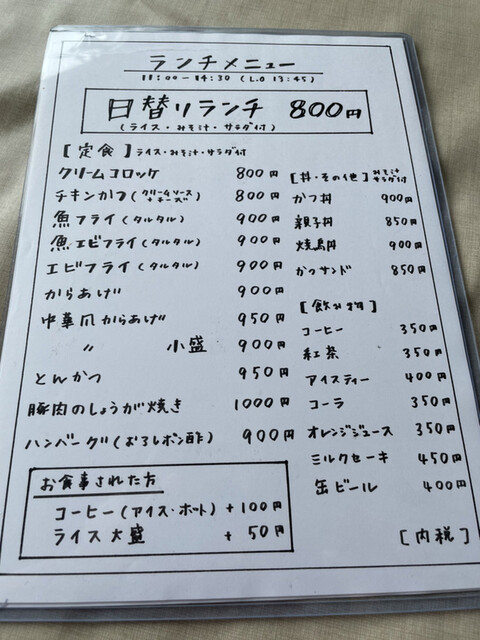 ランチメニュー
11:00-14:30 (L.O 13:45)
日替りランチ 800円
(ライス・みそ汁・サラダ付)
[定食] ライス・みそ汁・サラダ付
クリームコロッケ 800円
チキンカツ(クリームソース+チーズ) 800円
魚フライ(タルタル) 900円
魚エビフライ(タルタル) 900円
エビフライ(タルタル) 900円
からあげ 900円
中華風からあげ 950円
〃 小盛 900円
とんかつ 950円
豚肉のしょうが焼き 1000円
ハンバーグ(おろしポン酢) 900円
[丼・その他] みそ汁サラダ付
かつ丼 900円
親子丼 850円
焼鳥丼 900円
かつサンド 850円
[飲み物]
コーヒー 350円
紅茶 350円
アイスティー 400円
コーラ 350円
オレンジジュース 350円
ミルクセーキ 450円
缶ビール 400円
お食事された方
コーヒー(アイス・ホット) +100円
ライス大盛 + 50円
[内税]